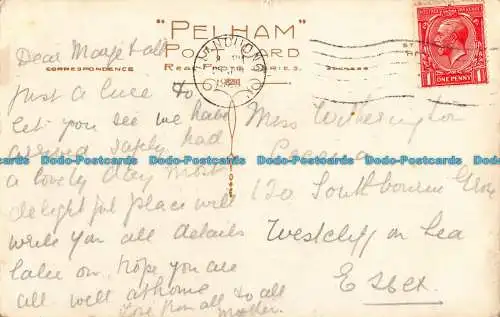 "PELHAM"
POSTCARD
CORRESPONDENCE
REAL PHOTO SERIES.
ONE PENNY
Dear Marge & all
Just a line to
let you see we have
arrived safely, had
a lovely day most
delightful place will
write you all details
later on. hope you are
all well at home
love from all to all
Mother.
Miss Witherington
120 Southbourne Grov
Westcliff on Sea
Essex.
Dodo-Postcards Dodo-Postcards Dodo-Postcards Dodo-Postcards Dodo-Postcards